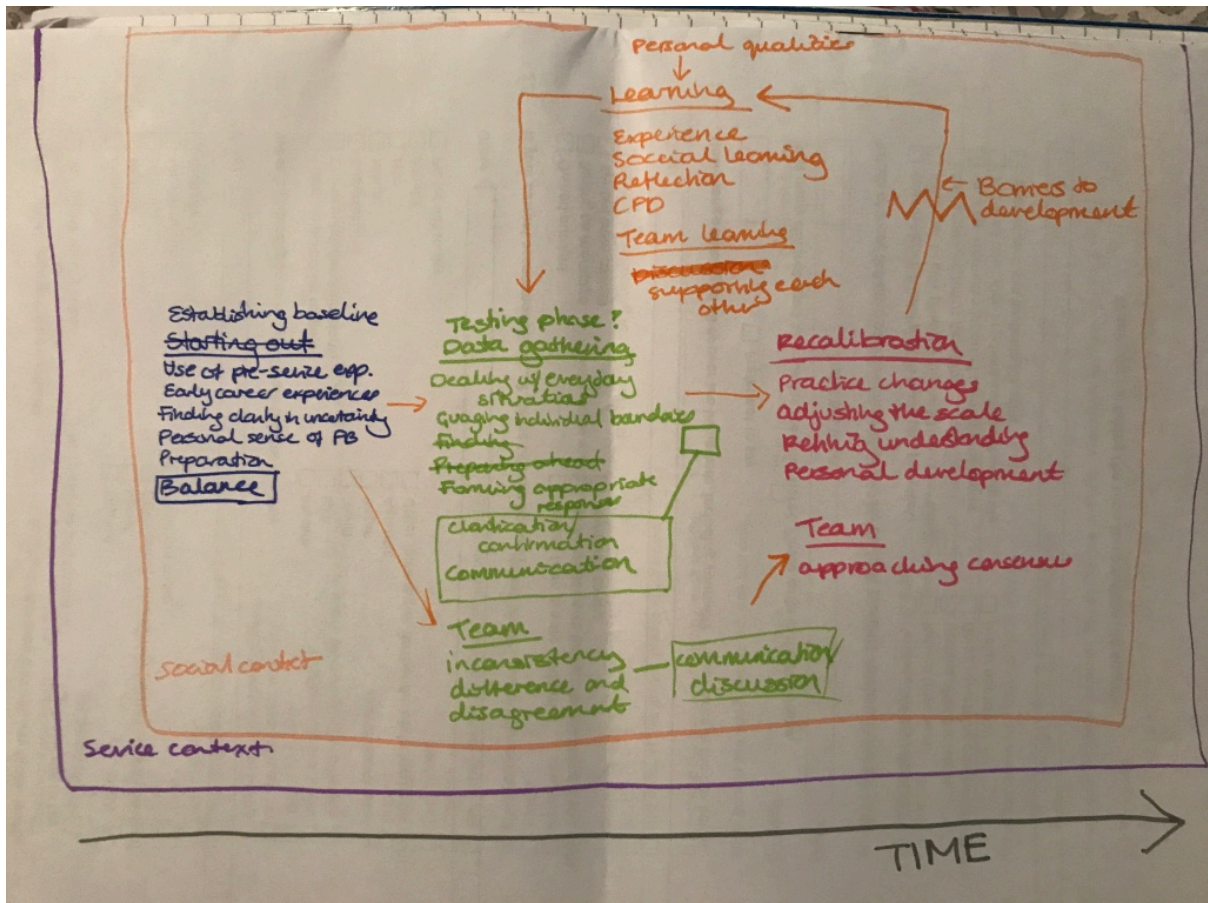 Personal qualities
Learning
Experience
Soccial learning
Reflection
CPD
Team learning
supporting each
other
Barriers to
development
Establishing baseline
Starting out
Use of pre-service exp.
Early career experiences
Finding clarity in uncertainty
Personal sense of PB
Preparation
Balance
Testing phase?
Data gathering
Dealing w/ everyday
situations
Guaging individual bandaries
Finding
Preparing ahead
Forming appropriate
responses
Clarification/
confirmation
Communication
Team
inconsistency
difference and
disagreement
communication/
discussion
Recalibration
Practice changes
adjusting the scale
Refining understanding
Personal development
Team
approaching consensus
Social context
Service context
TIME